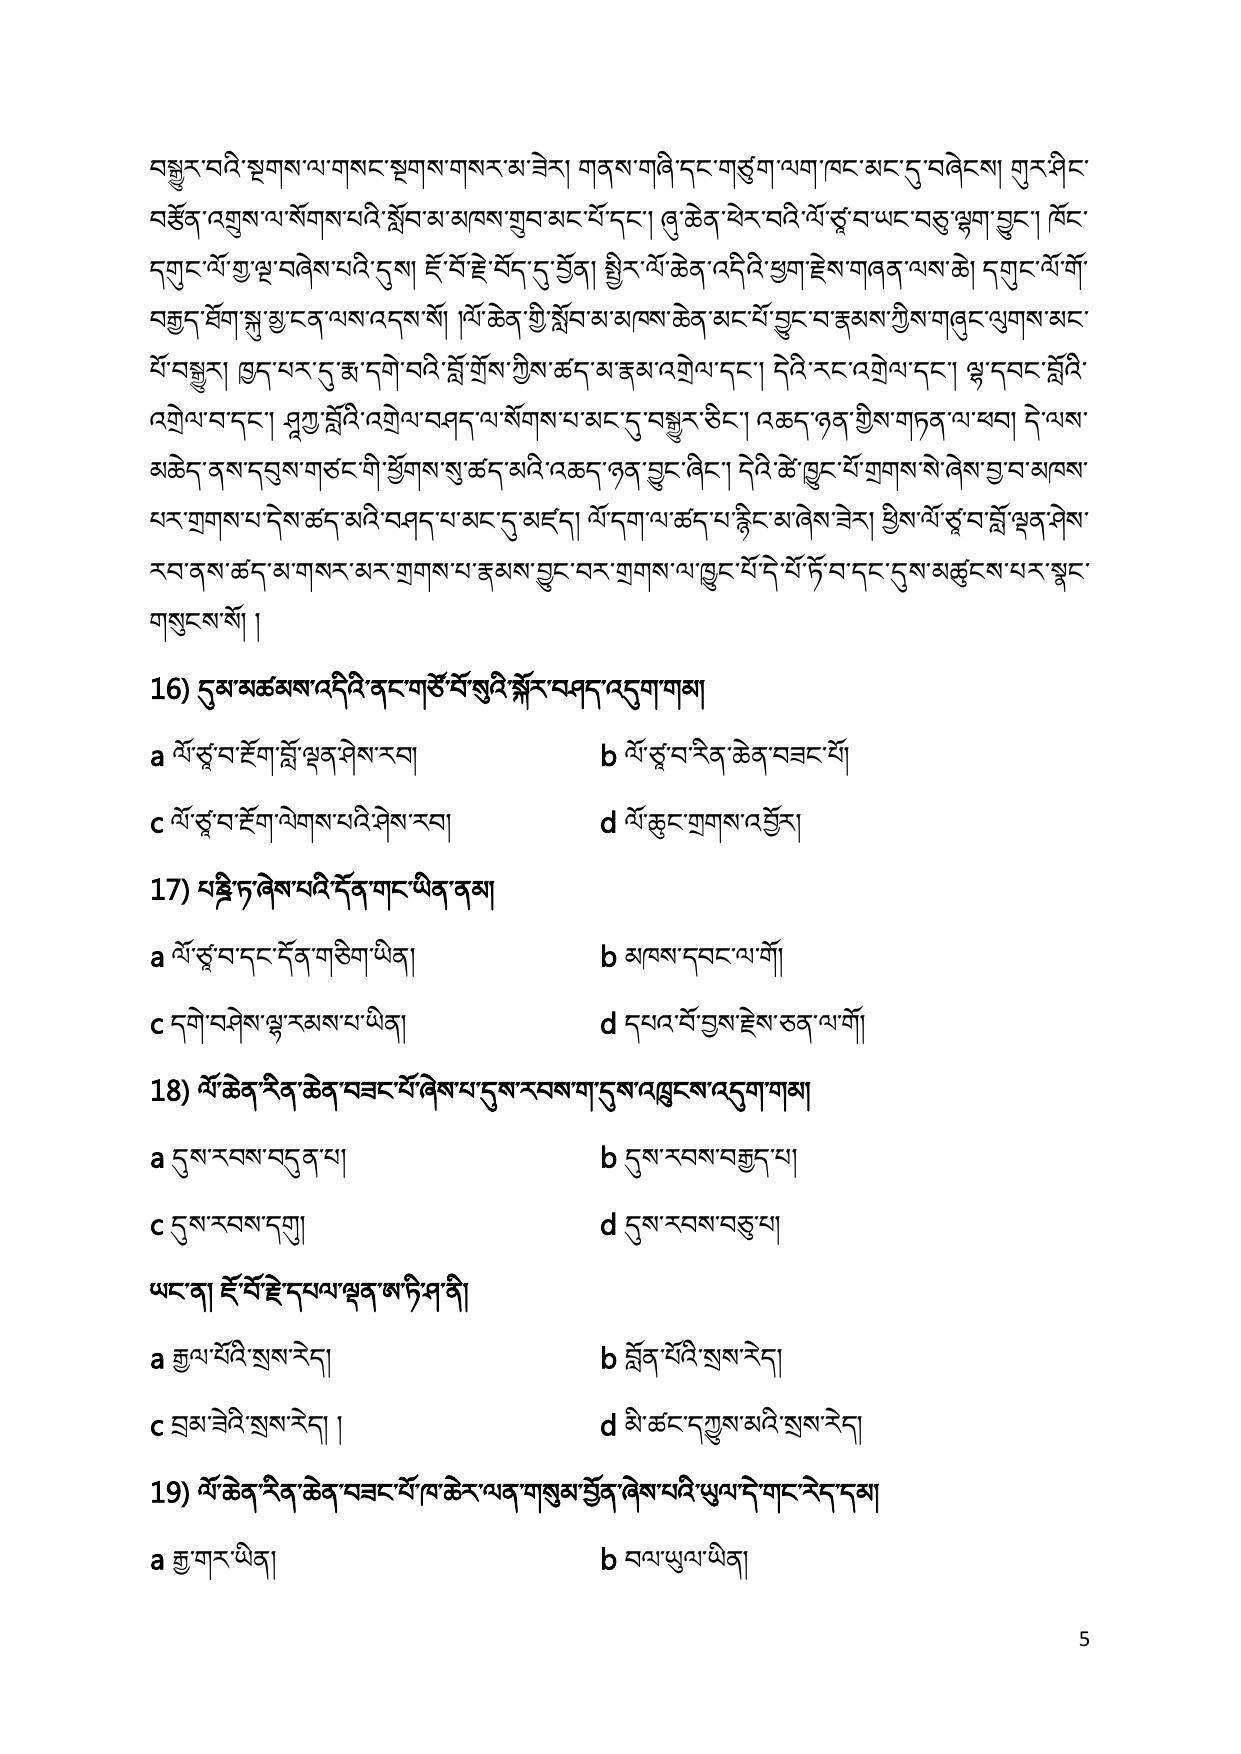 བསྒྱུར་བའི་སྔགས་ལ་གསང་སྔགས་གསར་མ་ཟེར། གནས་གཞི་དང་གཙུག་ལག་ཁང་མང་དུ་བཞེངས། གུར་ཤིང་
བརྩོན་འགྲུས་ལ་སོགས་པའི་སློབ་མ་མཁས་གྲུབ་མང་པོ་དང་། ཞུ་ཆེན་ཕེར་བའི་ལོ་ཙཱ་བ་ཡང་བཅུ་ལྷག་བྱུང་། ཁོང་
དགུང་ལོ་གྱ་ལྔ་བཞེས་པའི་དུས། ཇོ་བོ་རྗེ་བོད་དུ་བྱོན། སྤྱིར་ལོ་ཆེན་འདིའི་ཕྱག་རྗེས་གཞན་ལས་ཆེ། དགུང་ལོ་གོ་
བརྒྱད་ཐོག་སྐུ་མྱ་ངན་ལས་འདས་སོ། །ལོ་ཆེན་གྱི་སློབ་མ་མཁས་ཆེན་མང་པོ་བྱུང་བ་རྣམས་ཀྱིས་གཞུང་ལུགས་མང་
པོ་བསྒྱུར། ཁྱད་པར་དུ་རྨ་དགེ་བའི་བློ་གྲོས་ཀྱིས་ཚད་མ་རྣམ་འགྲེལ་དང་། དེའི་རང་འགྲེལ་དང་། ལྷ་དབང་བློའི་
འགྲེལ་བ་དང་། ཤཱཀྱ་བློའི་འགྲེལ་བཤད་ལ་སོགས་པ་མང་དུ་བསྒྱུར་ཅིང་། འཆད་ཉན་གྱིས་གཏན་ལ་ཕབ། དེ་ལས་
མཆེད་ནས་དབུས་གཙང་གི་ཕྱོགས་སུ་ཚད་མའི་འཆད་ཉན་བྱུང་ཞིང་། དེའི་ཚེ་ཁྱུང་པོ་གྲགས་སེ་ཞེས་བྱ་བ་མཁས་
པར་གྲགས་པ་དེས་ཚད་མའི་བཤད་པ་མང་དུ་མཛད། ལོ་དག་ལ་ཚད་པ་རྙིང་མ་ཞེས་ཟེར། ཕྱིས་ལོ་ཙཱ་བ་བློ་ལྡན་ཤེས་
རབ་ནས་ཚད་མ་གསར་མར་གྲགས་པ་རྣམས་བྱུང་བར་གྲགས་ལ་ཁྱུང་པོ་དེ་པོ་ཏོ་བ་དང་དུས་མཚུངས་པར་སྣང་
གསུངས་སོ། །
16) དུམ་མཚམས་འདིའི་ནང་གཙོ་བོ་སུའི་སྐོར་བཤད་འདུག་གམ།
a ལོ་ཙཱ་བ་རྔོག་བློ་ལྡན་ཤེས་རབ།
b ལོ་ཙཱ་བ་རིན་ཆེན་བཟང་པོ།
c ལོ་ཙཱ་བ་རྔོག་ལེགས་པའི་ཤེས་རབ།
d ལོ་ཆུང་གྲགས་འབྱོར།
17) པཎྜི་ཏ་ཞེས་པའི་དོན་གང་ཡིན་ནམ།
a ལོ་ཙཱ་བ་དང་དོན་གཅིག་ཡིན།
b མཁས་དབང་ལ་གོ།
c དགེ་བཤེས་ལྷ་རམས་པ་ཡིན།
d དཔའ་བོ་བྱས་རྗེས་ཅན་ལ་གོ།
18) ལོ་ཆེན་རིན་ཆེན་བཟང་པོ་ཞེས་པ་དུས་རབས་ག་དུས་འཁྲུངས་འདུག་གམ།
a དུས་རབས་བདུན་པ།
b དུས་རབས་བརྒྱད་པ།
c དུས་རབས་དགུ།
d དུས་རབས་བཅུ་པ།
ཡང་ན། ཇོ་བོ་རྗེ་དཔལ་ལྡན་ཨ་ཏི་ཤ་ནི།
a རྒྱལ་པོའི་སྲས་རེད།
b བློན་པོའི་སྲས་རེད།
c བྲམ་ཟེའི་སྲས་རེད། །
d མི་ཚང་དཀྱུས་མའི་སྲས་རེད།
19) ལོ་ཆེན་རིན་ཆེན་བཟང་པོ་ཁ་ཆེར་ལན་གསུམ་བྱོན་ཞེས་པའི་ཡུལ་དེ་གང་རེད་དམ།
a རྒྱ་གར་ཡིན།
b བལ་ཡུལ་ཡིན།
5